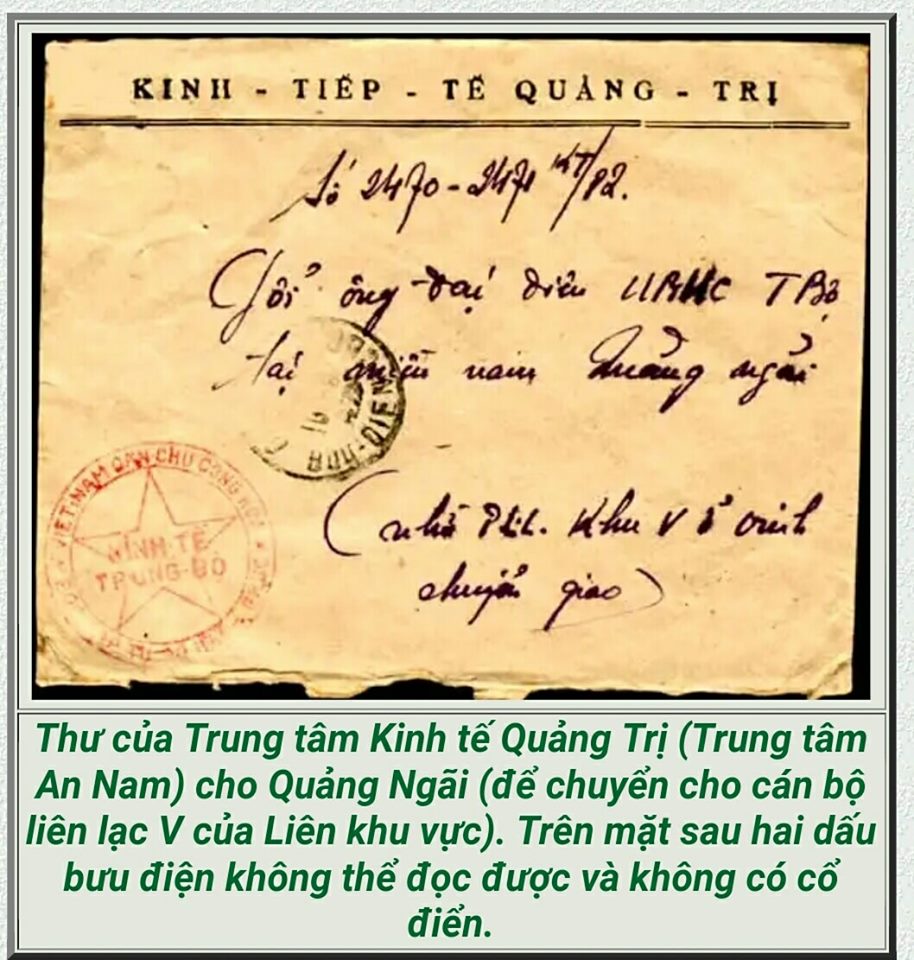 KINH - TIẾP - TẾ QUẢNG - TRỊ
Số 2470-2471 KT/P2.
Gởi ông đại diện UBHC TBộ
tại miền nam Quảng ngãi
BUU-DIEN
(nhờ Khu V ở vinh
chuyển giao)
VIET-NAM DAN CHU CONG HOA
KINH-TẾ
TRUNG-BỘ
Thư của Trung tâm Kinh tế Quảng Trị (Trung tâm
An Nam) cho Quảng Ngãi (để chuyển cho cán bộ
liên lạc V của Liên khu vực). Trên mặt sau hai dấu
bưu điện không thể đọc được và không có cổ
điển.